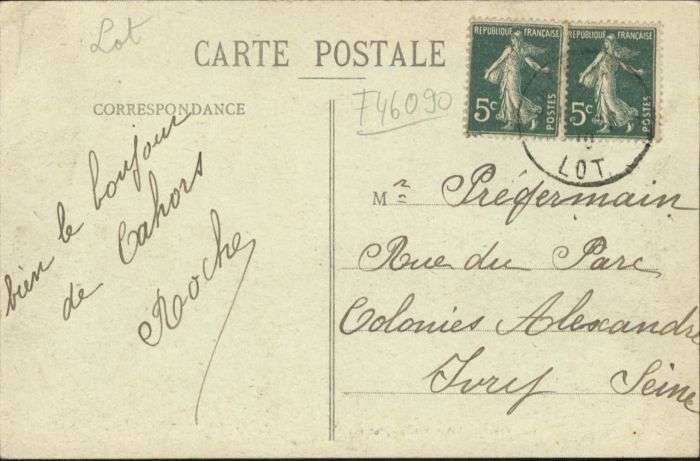 Lot
CARTE POSTALE
CORRESPONDANCE
F46090
REPUBLIQUE FRANÇAISE
5c
POSTES
REPUBLIQUE FRANÇAISE
5c
POSTES
LOT
bien le bonjour
de Cahors
Roche
Mr Prégermain
Rue du Parc
Colonies Alexandre
Ivry Seine